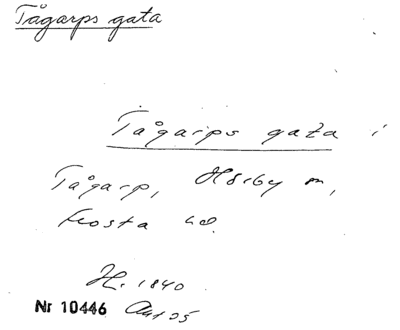 Tågarps gata
Tågarps gata i
Tågarp, Hörby sn,
Frosta hd.
H. 1840
Nr 10446